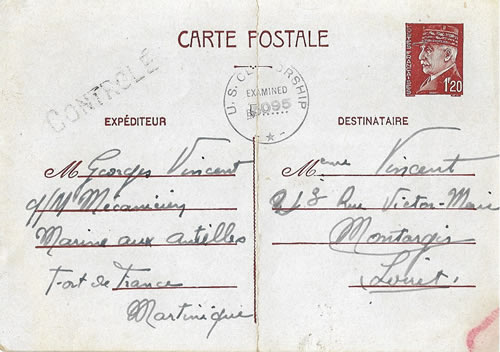 CARTE POSTALE
1f20
CONTROLÉ
U.S. CENSORSHIP
EXAMINED
BY 5095
EXPÉDITEUR
M. Georges Vincent
Mécanicien
Marine aux Antilles
Fort de France
Martinique
DESTINATAIRE
Meme Vincent
Rue Victor-Marie
Montargis
Loiret.